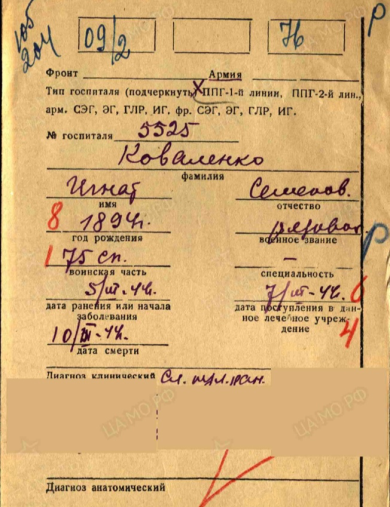 105
204
09/2
76
р
Фронт Армия
Тип госпиталя (подчеркнуть) ППГ-1-й линии, ППГ-2-й лин.,
арм. СЭГ, ЭГ, ГЛР, ИГ. фр. СЭГ, ЭГ, ГЛР, ИГ.
№ госпиталя 5525
Коваленко
фамилия
Игнат Семенов.
имя отчество
8 1894г. рядовой
год рождения военное звание
р
1 75 сп. —
воинская часть специальность
5/III-44. 7/III-44. 6
дата ранения или начала заболевания
дата поступления в данное лечебное учреждение
4
10/III-44.
дата смерти
Диагноз клинический Сл.
Диагноз анатомический
ЦАМО РФ
ЦАМО РФ